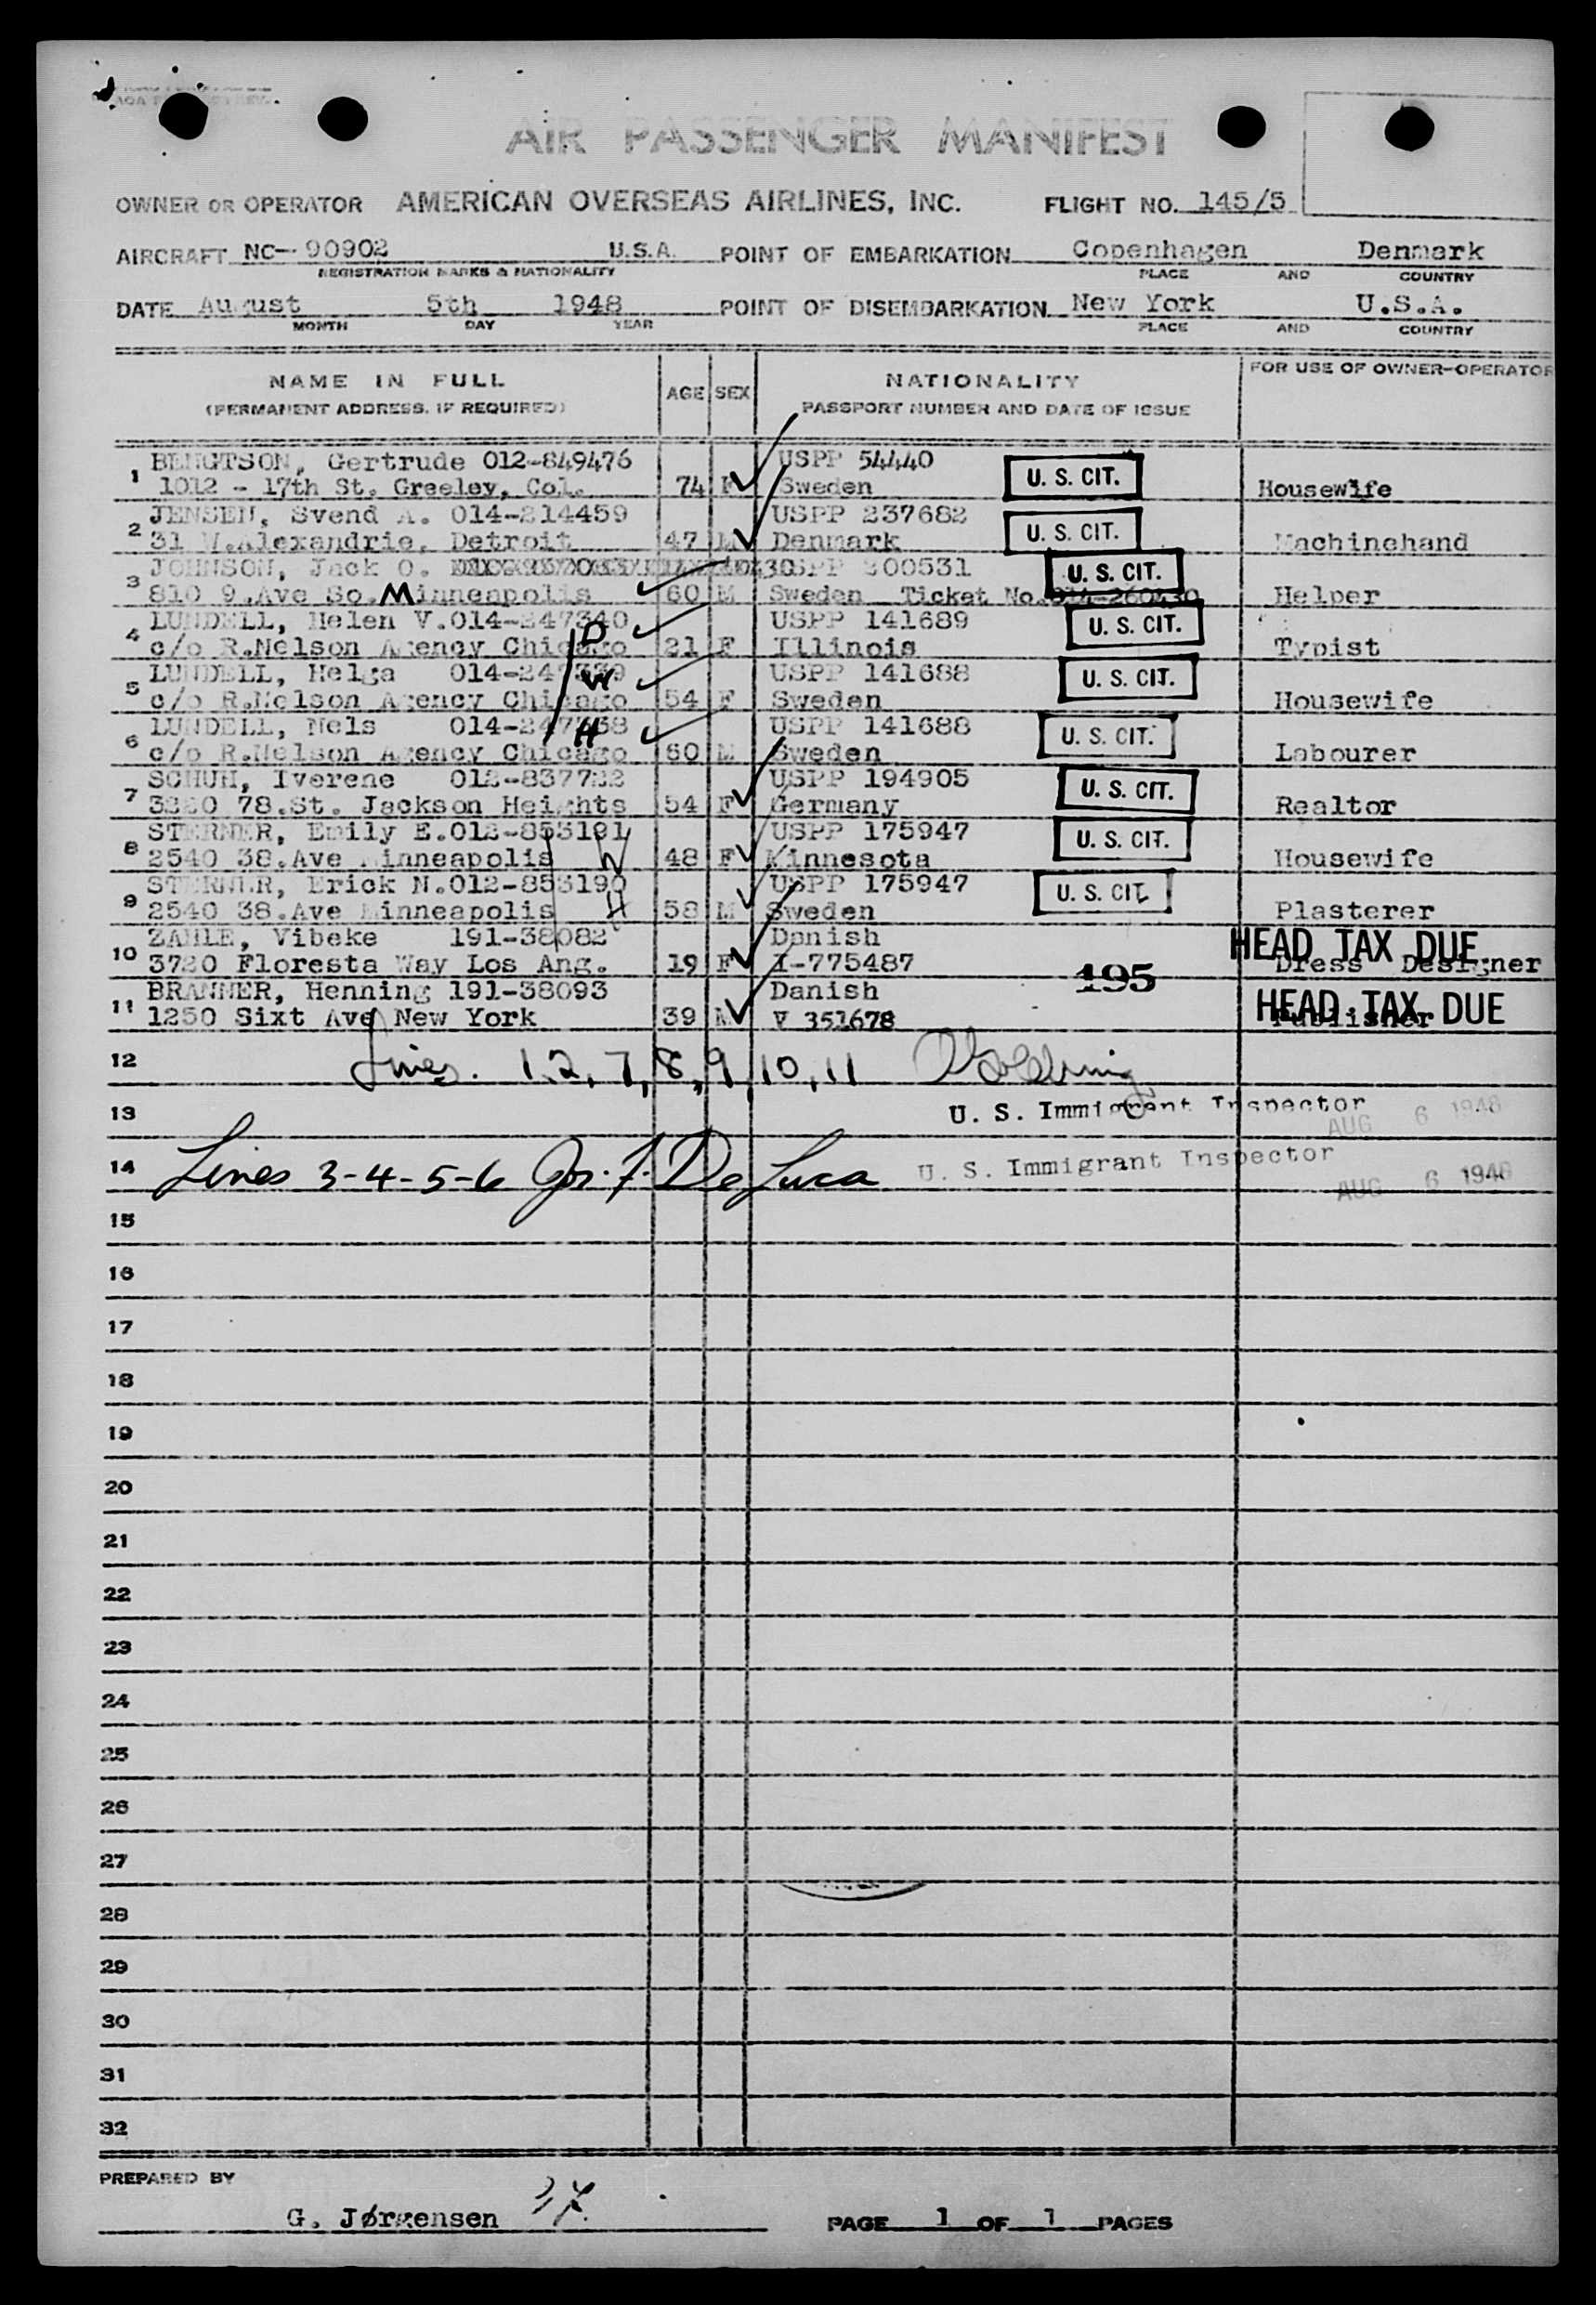 AIR PASSENGER MANIFEST
OWNER OR OPERATOR AMERICAN OVERSEAS AIRLINES, INC. FLIGHT NO. 145/5
AIRCRAFT NC- 90902 U.S.A. POINT OF EMBARKATION Copenhagen Denmark
REGISTRATION MARKS & NATIONALITY PLACE AND COUNTRY
DATE August 5th 1948 POINT OF DISEMBARKATION New York U.S.A.
MONTH DAY YEAR PLACE AND COUNTRY
NAME IN FULL AGE SEX NATIONALITY FOR USE OF OWNER-OPERATOR
(PERMANENT ADDRESS, IF REQUIRED) PASSPORT NUMBER AND DATE OF ISSUE
1 BENGTSON, Gertrude 012-849476 USPP 54440 U. S. CIT.
1012 - 17th St. Greeley, Col. 74 F Sweden Housewife
2 JENSEN, Svend A. 014-214459 USPP 237682 U. S. CIT.
31 W.Alexandrie, Detroit 47 M Denmark Machinehand
3 JOHNSON, Jack O. USPP 200531 U. S. CIT.
810 9.Ave So.Minneapolis 60 M Sweden Ticket No.014-260430 Helper
4 LUNDELL, Helen V.014-247340 D USPP 141689 U. S. CIT.
c/o R.Nelson Agency Chicago 21 F Illinois Typist
5 LUNDELL, Helga 014-247339 W USPP 141688 U. S. CIT.
c/o R.Nelson Agency Chicago 54 F Sweden Housewife
6 LUNDELL, Nels 014-247338 H USPP 141688 U. S. CIT.
c/o R.Nelson Agency Chicago 60 M Sweden Labourer
7 SCHUH, Iverene 012-837722 USPP 194905 U. S. CIT.
78.St. Jackson Heights 54 F Germany Realtor
8 STERNER, Emily E.012-853191 USPP 175947 U. S. CIT.
2540 38.Ave Minneapolis W 48 F Minnesota Housewife
9 STERNER, Erick N.012-853190 USPP 175947 U. S. CIT.
2540 38.Ave Minneapolis H 58 M Sweden Plasterer
10 ZAHLE, Vibeke 191-38082 Danish HEAD TAX DUE
3720 Floresta Way Los Ang. 19 F I-775487 195 Dress Designer
11 BRANNER, Henning 191-38093 Danish HEAD TAX DUE
1250 Sixt Ave New York 39 M V 351678 Publisher
12 Lines. 1,2,7,8,9,10,11
13 U. S. Immigrant Inspector AUG 6 1948
14 Lines 3-4-5-6 Jos. F. De Luca U. S. Immigrant Inspector AUG 6 1948
15
16
17
18
19
20
21
22
23
24
25
26
27
28
29
30
31
32
PREPARED BY
G. Jørgensen PAGE 1 OF 1 PAGES